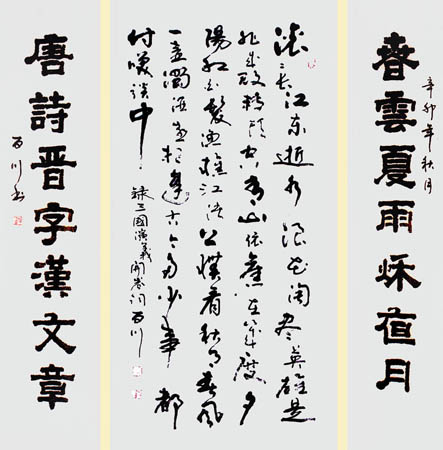 春雲夏雨秋夜月
辛卯年秋月
滚滚长江东逝水浪花淘尽英雄是
非成败转头空青山依旧在几度夕
阳红白发渔樵江渚上惯看秋月春风
一壶浊酒喜相逢古今多少事都
付笑谈中
録三國演義開卷词百川
唐詩晋字漢文章
百川书